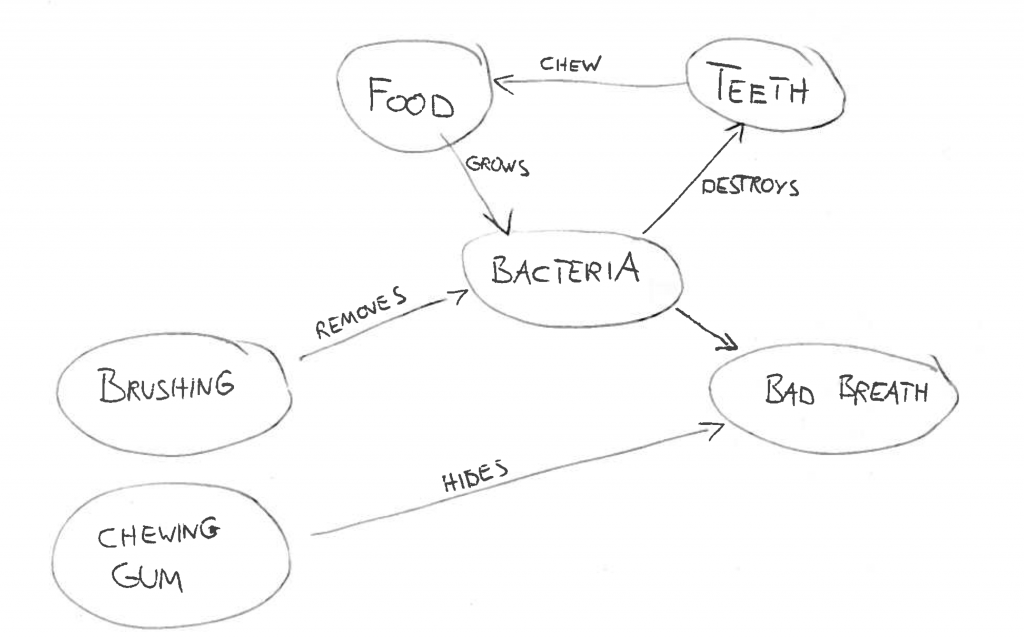 FOOD
CHEW
TEETH
GROWS
DESTROYS
BACTERIA
REMOVES
BRUSHING
BAD BREATH
HIDES
CHEWING
GUM